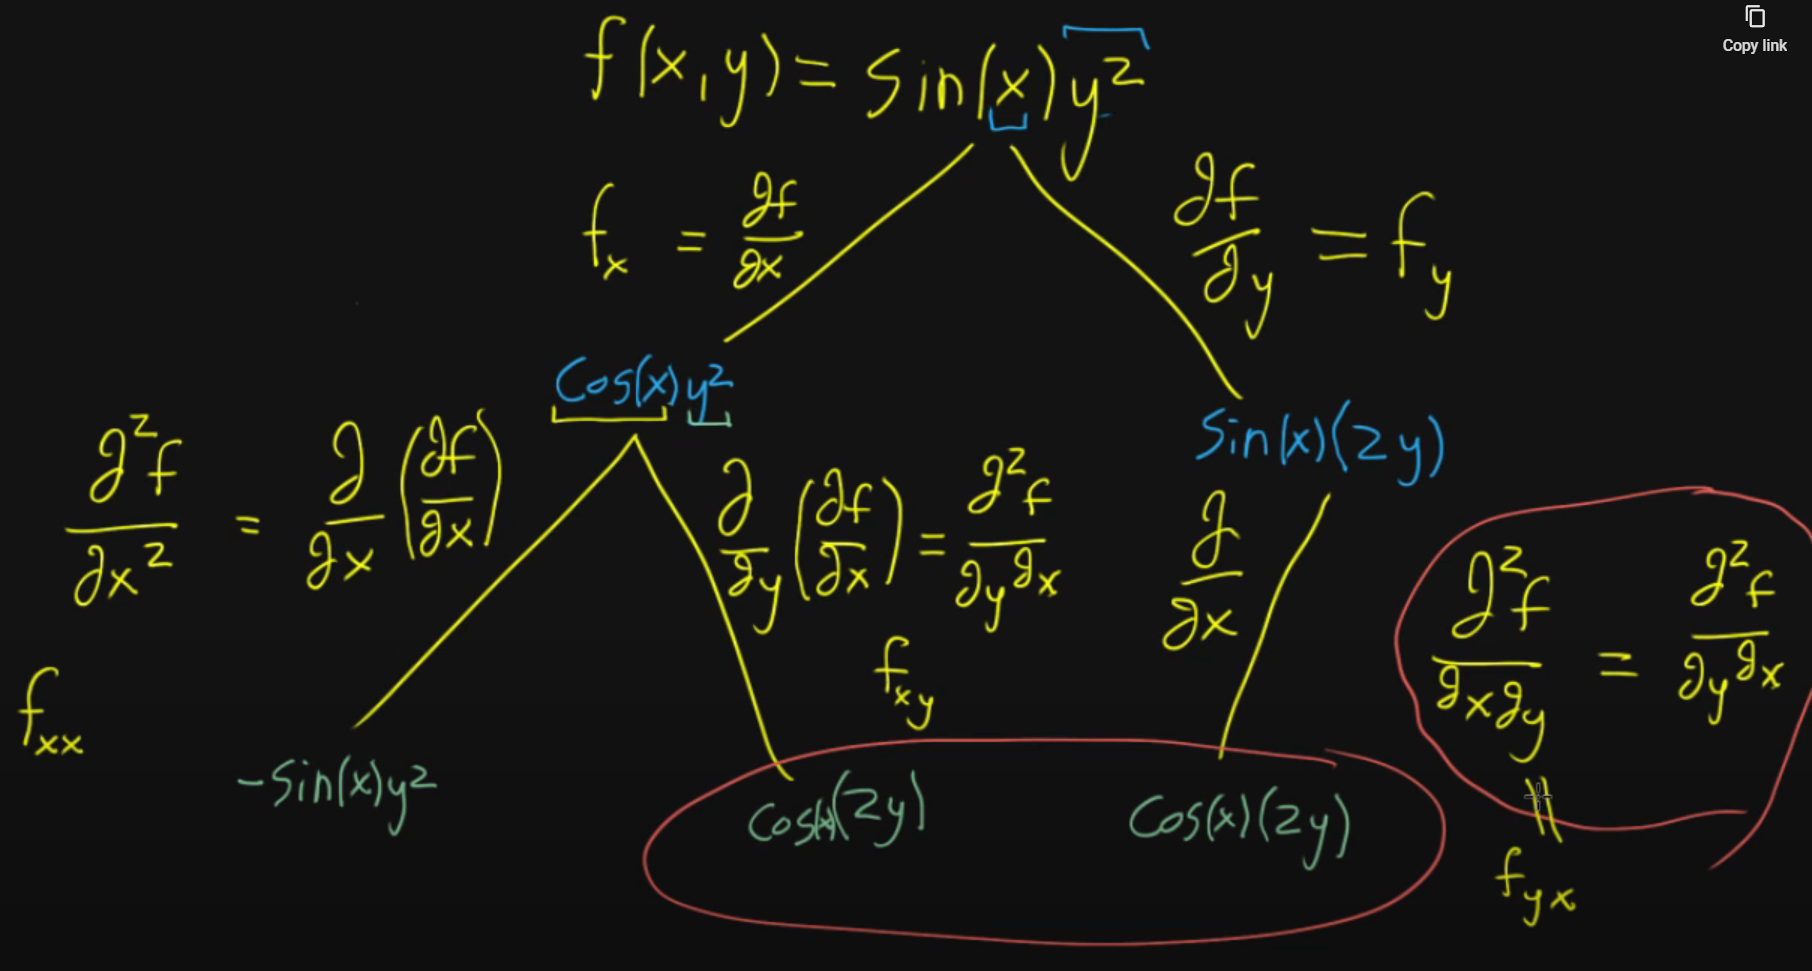 Copy link
f(x,y) = Sin(x)y²
f_x = ∂f/∂x
∂f/∂y = f_y
Cos(x)y²
Sin(x)(2y)
∂²f/∂x² = ∂/∂x (∂f/∂x)
∂/∂y (∂f/∂x) = ∂²f/∂y∂x
∂/∂x
∂²f/∂x∂y = ∂²f/∂y∂x
f_xx
f_xy
-Sin(x)y²
Cos(x)(2y)
Cos(x)(2y)
||
f_yx